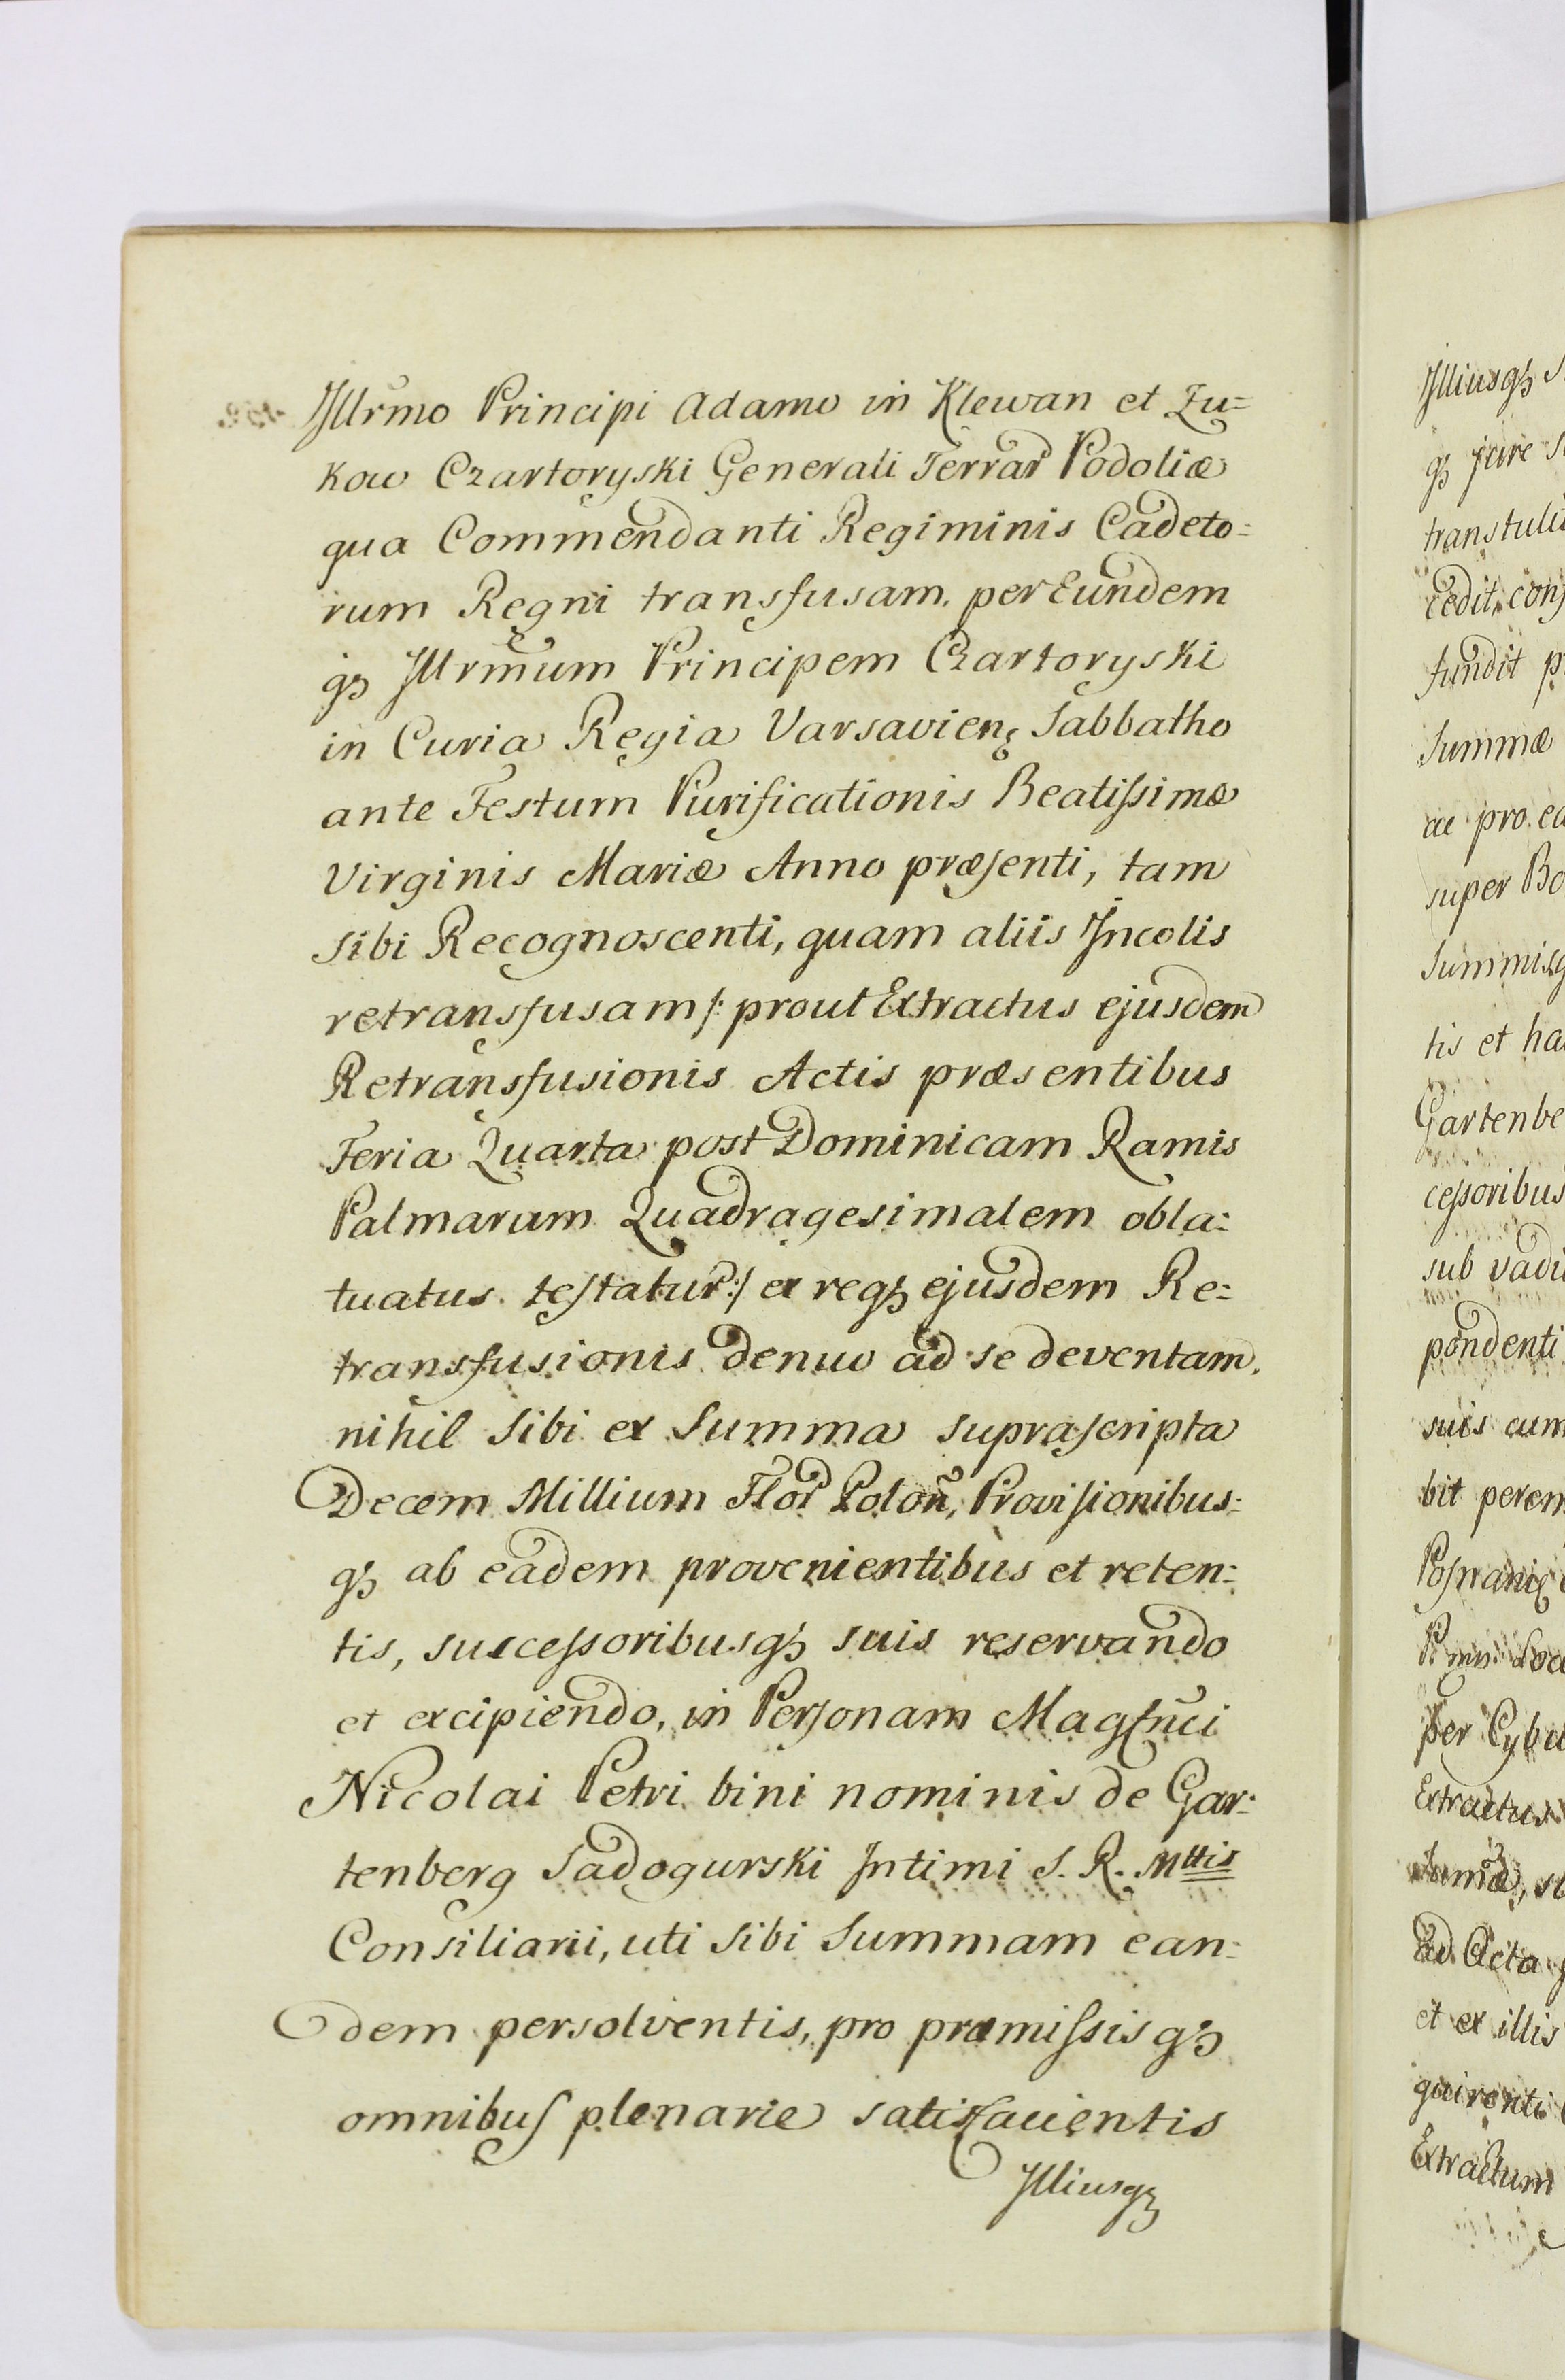 Jllrmo Principi Adamo in Klewan et Zu=
kow Czartoryski Generali Terrar Podoliæ
qua Commendanti Regiminis Cadeto=
rum Regni transfusam. per Eundem
qȝ Jllrmum Principem Czartoryski
in Curia Regia Varsavien Sabbatho
ante Festum Purificationis Beatiſsimæ
Virginis Mariæ Anno præſenti, tam
sibi Recognoscenti, quam aliis Jncolis
retransfusam /: prout Extractus ejusdem
Retransfusionis Actis præsentibus
Feria Quarta post Dominicam Ramis
Palmarum Quadragesimalem obla=
tuatus teſtatur :/ ex reqȝ ejusdem Re=
transfusionis denuo ad se deventam,
nihil sibi ex Summa supraſcripta
Decem Millium Flor Polon̄, Proviſionibus=
qȝ ab eadem provenientibus et reten=
tis, succeſsoribusqȝ suis reservando
et excipiendo, in Perſonam Magfn̄ci
Nicolai Petri bini nominis de Gar=
tenberg Sadogurski Jntimi S. R. Mttis
Consiliarii, uti sibi Summam ean=
dem persolventis, pro præmiſsisqȝ
omnibuſ plenarie satisfacientis
Jlliusqȝ
Jlliusqȝ
qȝ jure
transtulit
cedit, conſ
fundit
Summæ
ac pro ea
super Bo
Summisq
tis et ha
Gartenbe
ceſsoribus
sub vadi
pondenti
suis cum
bit perem
Poſnani
Loc
per Cybu
Extractus
ad Acta
et ex illis
quirenti
Extractum